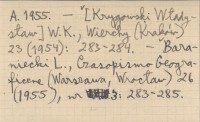 A. 1955. — "[Krygowski Włady-
sław] W.K., Wierchy (Kraków)
23 (1954): 283-284. — Bara-
niecki L., Czasopismo Geogra-
ficzne (Warszawa, Wrocław) 26
(1955), nr 3: 283-285.